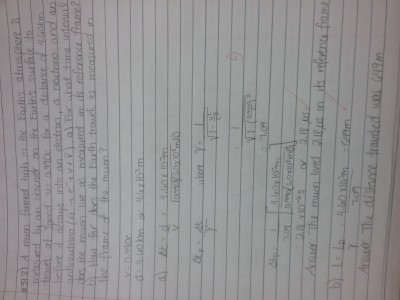 A muon formed high in the Earth's atmosphere is
measured by an observer on the Earth's surface to
travel at speed v = 0.990c for a distance of 4.60 km
before it decays into an electron, a neutrino and an
antineutrino
a) For what time interval
does the muon live as measured in its reference frame?
b) How far does the Earth travel as measured in
the frame of the muon?
v = 0.990c
d = 4.60 km or 4.6x10³m
a) Δt = d/v = 4.60 x 10³m
Δtp = Δt/γ where γ = 1
√1 - v²/c²
= 1
= 7.09
Δtp = 1/7.09 [4.60x10³m
or 2.18 μs
Answer The muon lived 2.18 μs in its reference frame
b) L = Lp/γ = 4.60x10³m/7.09 = 649m
Answer The distance traveled was 649 m